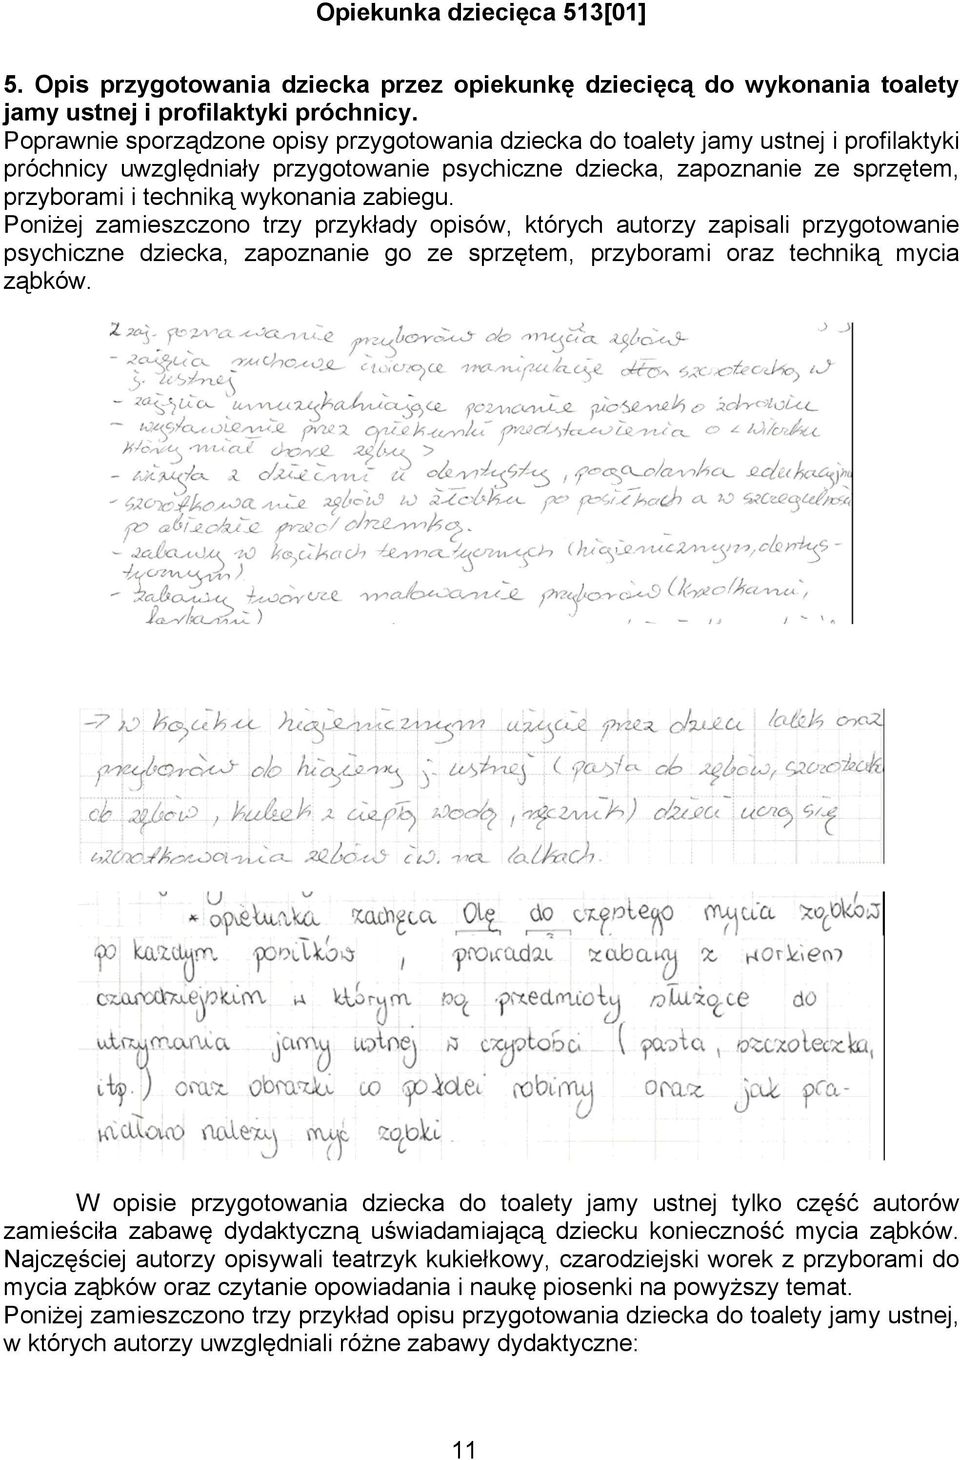 Opiekunka dziecięca 513[01]
5. Opis przygotowania dziecka przez opiekunkę dziecięcą do wykonania toalety
jamy ustnej i profilaktyki próchnicy.
Poprawnie sporządzone opisy przygotowania dziecka do toalety jamy ustnej i profilaktyki
próchnicy uwzględniały przygotowanie psychiczne dziecka, zapoznanie ze sprzętem,
przyborami i techniką wykonania zabiegu.
Poniżej zamieszczono trzy przykłady opisów, których autorzy zapisali przygotowanie
psychiczne dziecka, zapoznanie go ze sprzętem, przyborami oraz techniką mycia
ząbków.
zaj. poznawanie przyborów do mycia zębów
- zajęcia ruchowe ćwiczące manipulację dłoń szczoteczką w
j. ustnej
- zajęcia umuzykalniające poznanie piosenek o zdrowiu
- wystawienie przez opiekunki przedstawienia o <Wilczku
który miał chore zęby>
- wizyta z dziećmi u dentysty, pogadanka edukacyjna
- szczotkowanie zębów w żłobku po posiłkach a w szczegulności
po obiedzie przed drzemką.
- zabawy w kącikach tematycznych (higienicznym, dentys-
tycznym)
- zabawy twórcze malowanie przyborów (kredkami,
farbami)
→ w kąciku higienicznym użycie przez dzieci lalek oraz
przyborów do higieny j. ustnej (pasta do zębów, szczoteczk
do zębów, kubek z ciepłą wodą, ręcznik) dzieci uczą się
szczotkowania zębów ćw. na lalkach.
* opiekunka zachęca Olę do częstego mycia ząbków
po każdym posiłków, prowadzi zabawy z workiem
czarodziejskim w którym są przedmioty służące do
utrzymania jamy ustnej w czystości (pasta, szczoteczka,
itp.) oraz obrazki co po kolei robimy oraz jak pra-
widłowo należy myć ząbki.
W opisie przygotowania dziecka do toalety jamy ustnej tylko część autorów
zamieściła zabawę dydaktyczną uświadamiającą dziecku konieczność mycia ząbków.
Najczęściej autorzy opisywali teatrzyk kukiełkowy, czarodziejski worek z przyborami do
mycia ząbków oraz czytanie opowiadania i naukę piosenki na powyższy temat.
Poniżej zamieszczono trzy przykład opisu przygotowania dziecka do toalety jamy ustnej,
w których autorzy uwzględniali różne zabawy dydaktyczne:
11